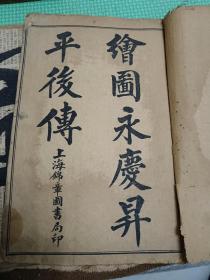 繪圖永慶昇
平後傳
上海錦章圖書局印